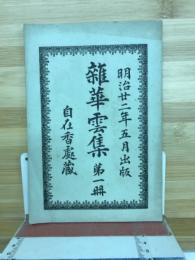 明治廿二年五月出版
雜華雲集 第一冊
自在香處藏